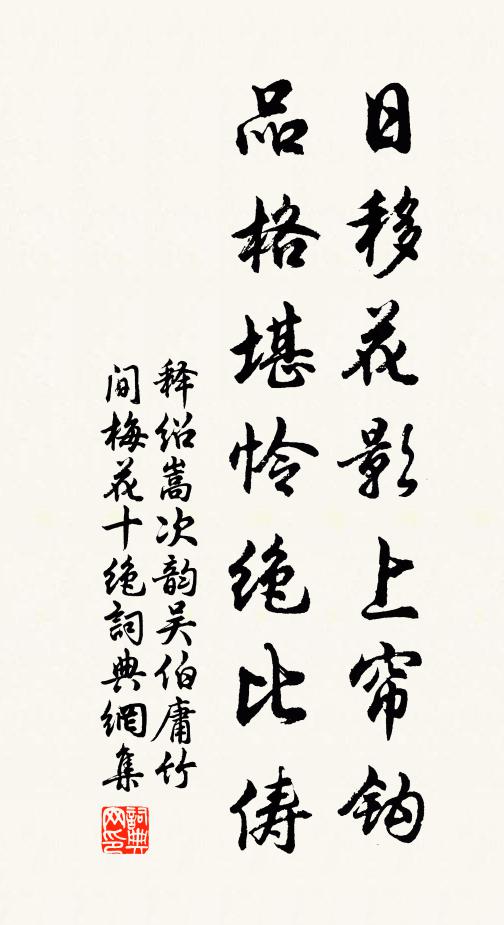 日移花影上帘钩
品格堪怜绝比俦
释绍嵩次韵吴伯庸竹
间梅花十绝詞典網集
詞典
网印